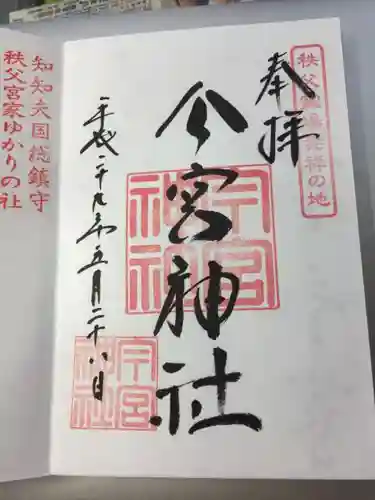 奉拝
今宮神社
平成二十九年五月二十八日
今宮
神社
今宮
神社
知知夫国総鎮守
秩父宮家ゆかりの社